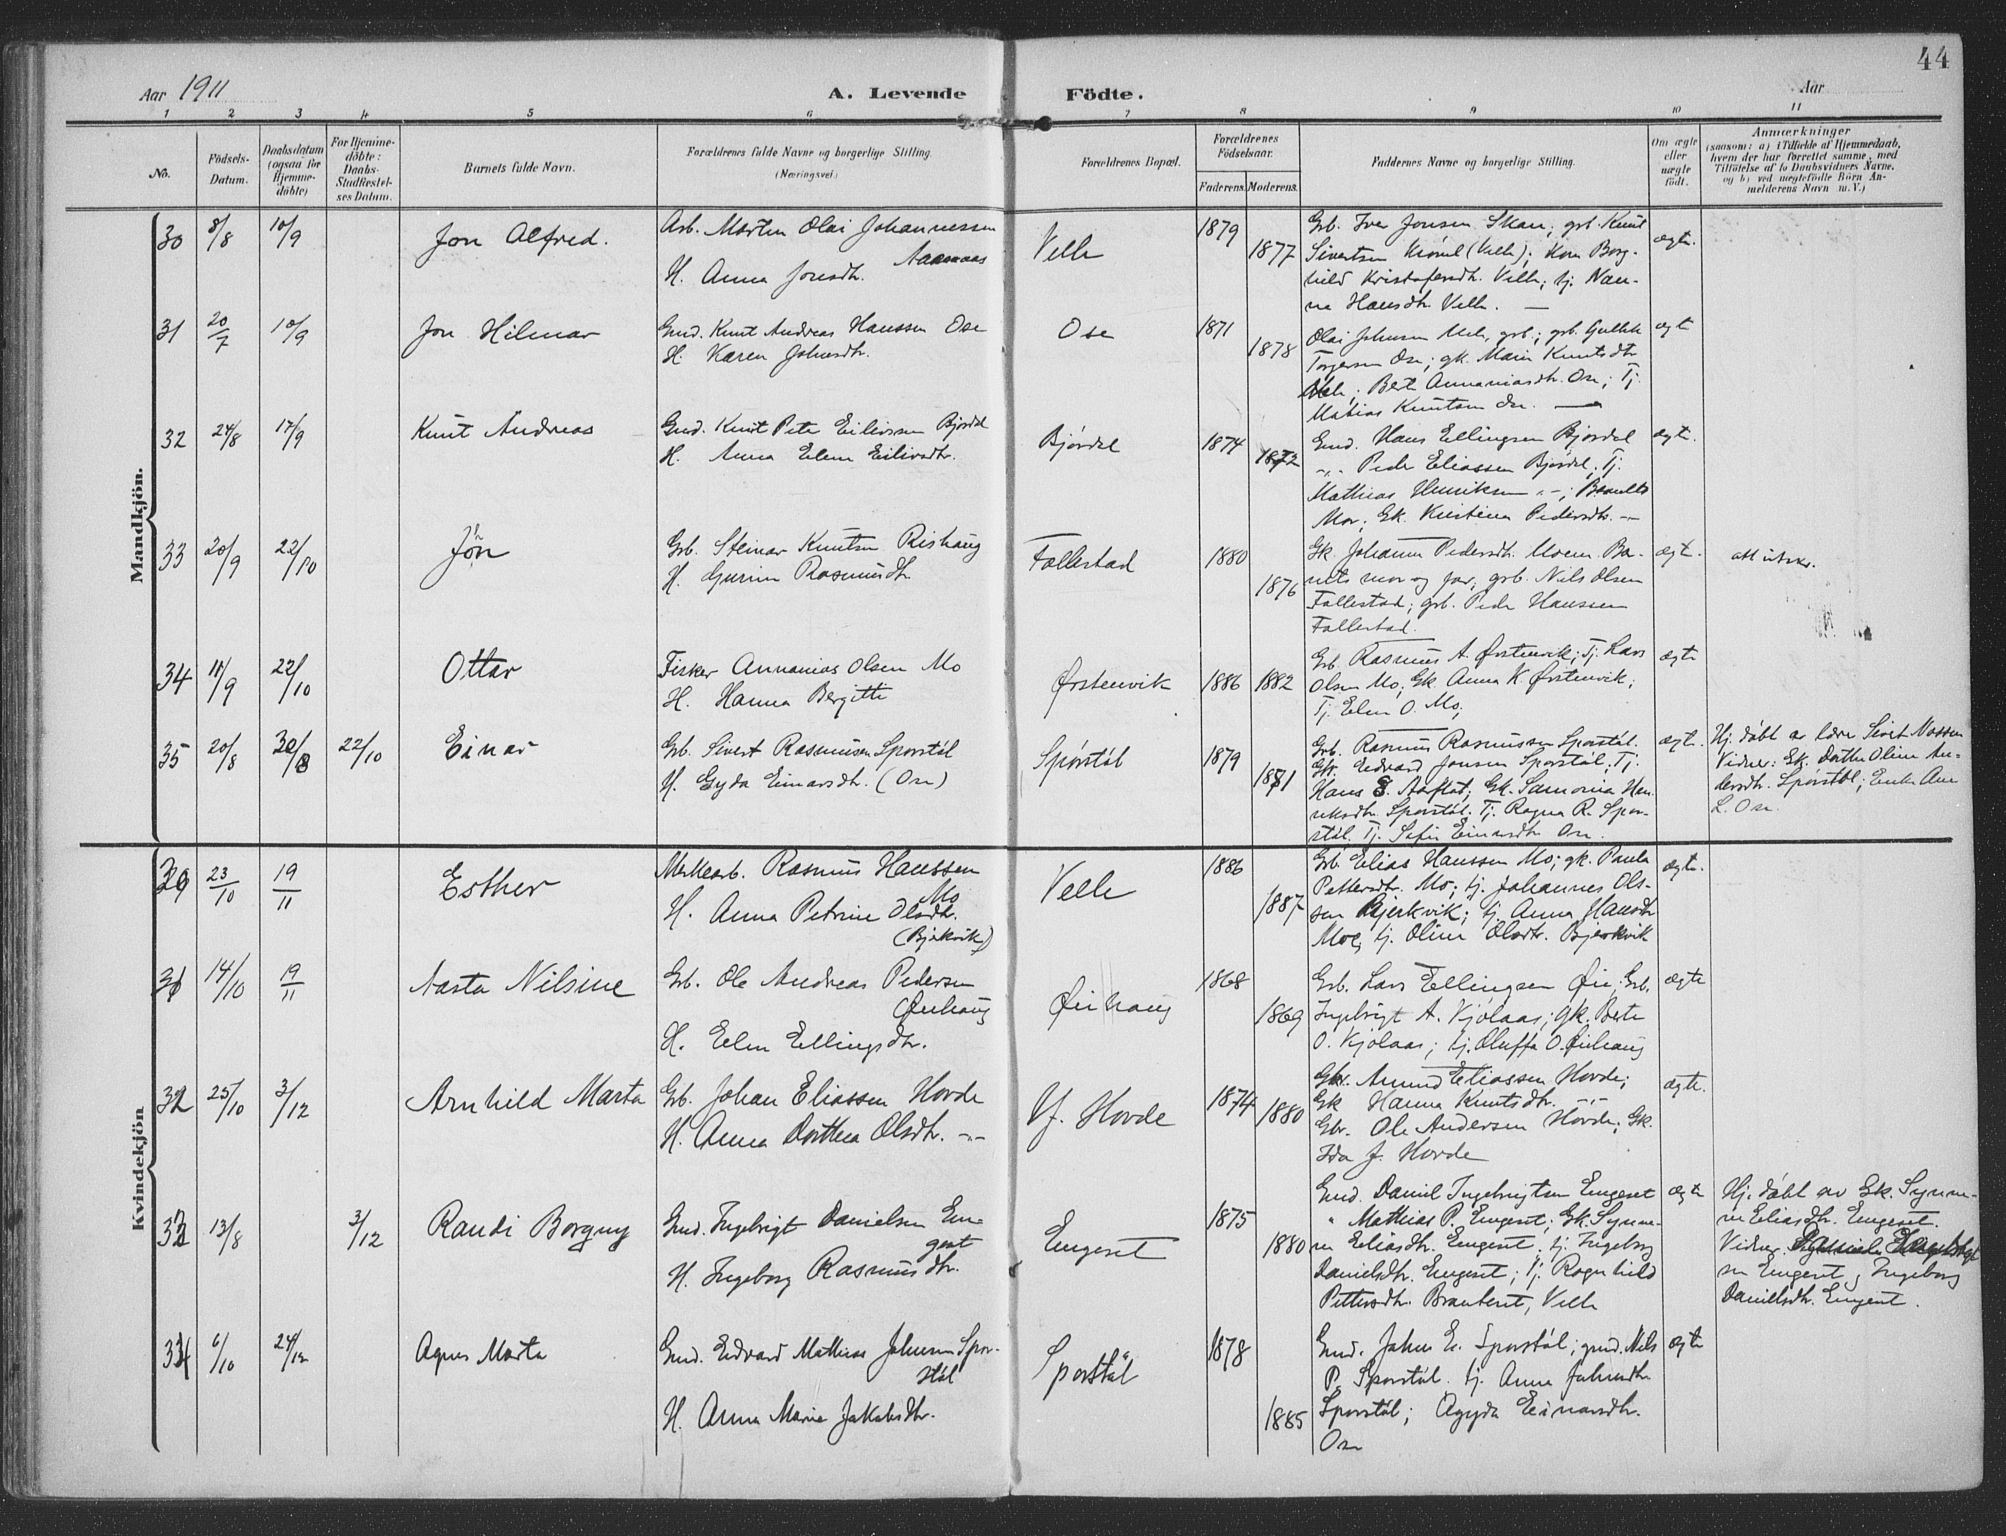 44
Aar 1911
A. Levende Födte.
Aar
1 2 3 4 5 6 7 8 9 10 11
No.
Födsels-Datum.
Daabsdatum (ogsaa for Hjemme-döbte)
For Hjemme-döbte: Daabs-Stadfæstel-ses Datum.
Barnets fulde Navn.
Forældrenes fulde Navne og borgerlige Stilling. (Næringsvei.)
Forældrenes Bopæl.
Forældrenes Födselsaar.
Faderens. Moderens.
Faddernes Navne og borgerlige Stilling.
Om ægte eller uægte födt.
Anmærkninger
(saasom: a) i Tilfælde af Hjemmedaab,
hvem der har forrettet samme, med
Tilföielse af to Daabsvidners Navne,
og b) ved uægtefödte Börn An-
melderens Navn m. V.)
Mandkjön.
30 8/8 10/9 Jon Alfred.
Arb. Martin Olai Johannessen
Aamaas
H. Anna Jonsdtr.
Velle 1879 1877
Grb. Iver Jonsen Skar; grb. Knut
Sivertsen (Velle); Kone Borg-
hild Kristofersdtr. Velle; tj. Nan-
na Hansdtr. Velle. —
ægte.
31 20/7 10/9 Jon Hilmar
Gmd. Knut Andreas Hanssen Ose
H. Karen Johnsdtr.
Ose 1871 1878
Olai Johnsen Mele, grb.; grb. Gullik
Torgersen Ose; gk. Marie Knutsdtr
Mele; Berte Annaniasdtr. Ose; Tj.
Matias Knutsen Ose. —
ægte
32 24/8 17/9 Knut Andreas
Gmd. Knut Peter Eilivssen Bjørdal
H. Anna Elene Eilivsdtr.
Bjørdal 1874 1872
Gmd. Hans Ellingsen Bjørdal
-"- Peder Eliassen Bjørdal; Tj.
Mathias Henriksen -"-; Barnets
Mor; Gk. Kristine Pedersdtr. —
ægte.
33 20/9 22/10 Jon
Grb. Steinar Knutsen Rishaug
H. Gurine Rasmusdtr.
Follestad 1880 1876
Gk. Johanna Pedersdtr. Moene. Ba-
nets mor og far, grb. Nils Olsen
Follestad; grb. Peder Hanssen
Follestad.
ægte.
att. utskr.
34 11/9 22/10 Ottar
Fisker Annanias Olsen Mo
H. Hanna Bergitte
Ørstenvik 1886 1882
Grb. Rasmus A. Ørstenvik; Tj. Lars
Olsen Mo; Gk. Anna K. Ørstenvik;
Tj. Elen O. Mo;
ægte
35 20/8 30/8 22/10 Einar
Grb. Sivert Rasmussen Sporstøl
H. Gyda Einarsdtr. (Ose)
Sporstøl 1879 1881
Grb. Rasmus Rasmussen Sporstøl.
Gk. Edvard Jonsen Sporstøl; Tj.
Hans E. Aaflot; Gk. Samonia Hen-
riksdtr. Sporstøl. Tj. Ragna R. Spor-
støl. Tj. Sofie Einarsdtr Ose.
ægte.
Hj. døbt av lære Sivert Nossen
Vidner: Gk. Dorthe Oline An-
dersdtr. Sporstøl; Enke Ane
L. Ose.
Kvindekjön
30 23/10 19/11 Esther
Merkearb. Rasmus Hanssen
Mo
H. Anna Petrine Olsdtr.
(Bjerkvik)
Velle 1886 1887
Grb. Elias Hanssen Mo; gk. Paula
Pettersdtr. Mo; tj. Johannes Ols-
sen Bjerkvik; tj. Anna Hansdtr
Moe; tj. Oline Olsdtr. Bjerkvik
ægte.
31 14/10 19/11 Aasta Nilsine
Grb. Ole Andreas Pedersen
Øiehaug
H. Elen Ellingsdtr.
Øiehaug 1868 1869
Grb. Lars Ellingsen Øie; Grb.
Ingebrigt A. Kjølaas; gk. Berte
O. Kjølaas; tj. Oluffa O. Øiehaug
ægte
32 25/10 3/12 Arnhild Marta
Grb. Johan Eliassen Hovde
H. Anna Dorthea Olsdtr. -"-
Yt. Hovde 1874 1880
Gbr. Amund Eliassen Hovde;
Gk Hanna Knutsdtr. -"-
Gbr. Ole Andersen Hovde; Gk.
Ida J. Hovde
ægte.
33 13/8 3/12 Randi Borgny
Gmd. Ingebrigt Danielsen En-
geset
H. Ingeborg Rasmusdtr.
Engeset 1875 1880
Gmd. Daniel Ingebrigtsen Engeset
" Mathias P. Engeset; Gk. Synnø-
ve Eliasdtr. Engeset. tj. Ingeborg
Danielsdtr. Engeset; tj. Ragnhild
Pettersdtr. Brauteset, Velle
ægte
Hj. døbt av Gk. Synnø-
ve Eliasdtr. Engeset.
Vidner Daniel Ingebrigt-
sen Engeset og Ingeborg
Danielsdtr. Engeset.
34 6/10 24/12 Agnes Marta
Gmd. Edvard Mathias Johnsen Spor-
støl
H. Anna Marie Jakobsdtr.
Sporstøl 1878 1885
Gmd. John E. Sporstøl; gmd. Nils
P. Sporstøl. tj. Anne Johnsdtr
Sporstøl; Agyda Einarsdtr.
Ose
ægte